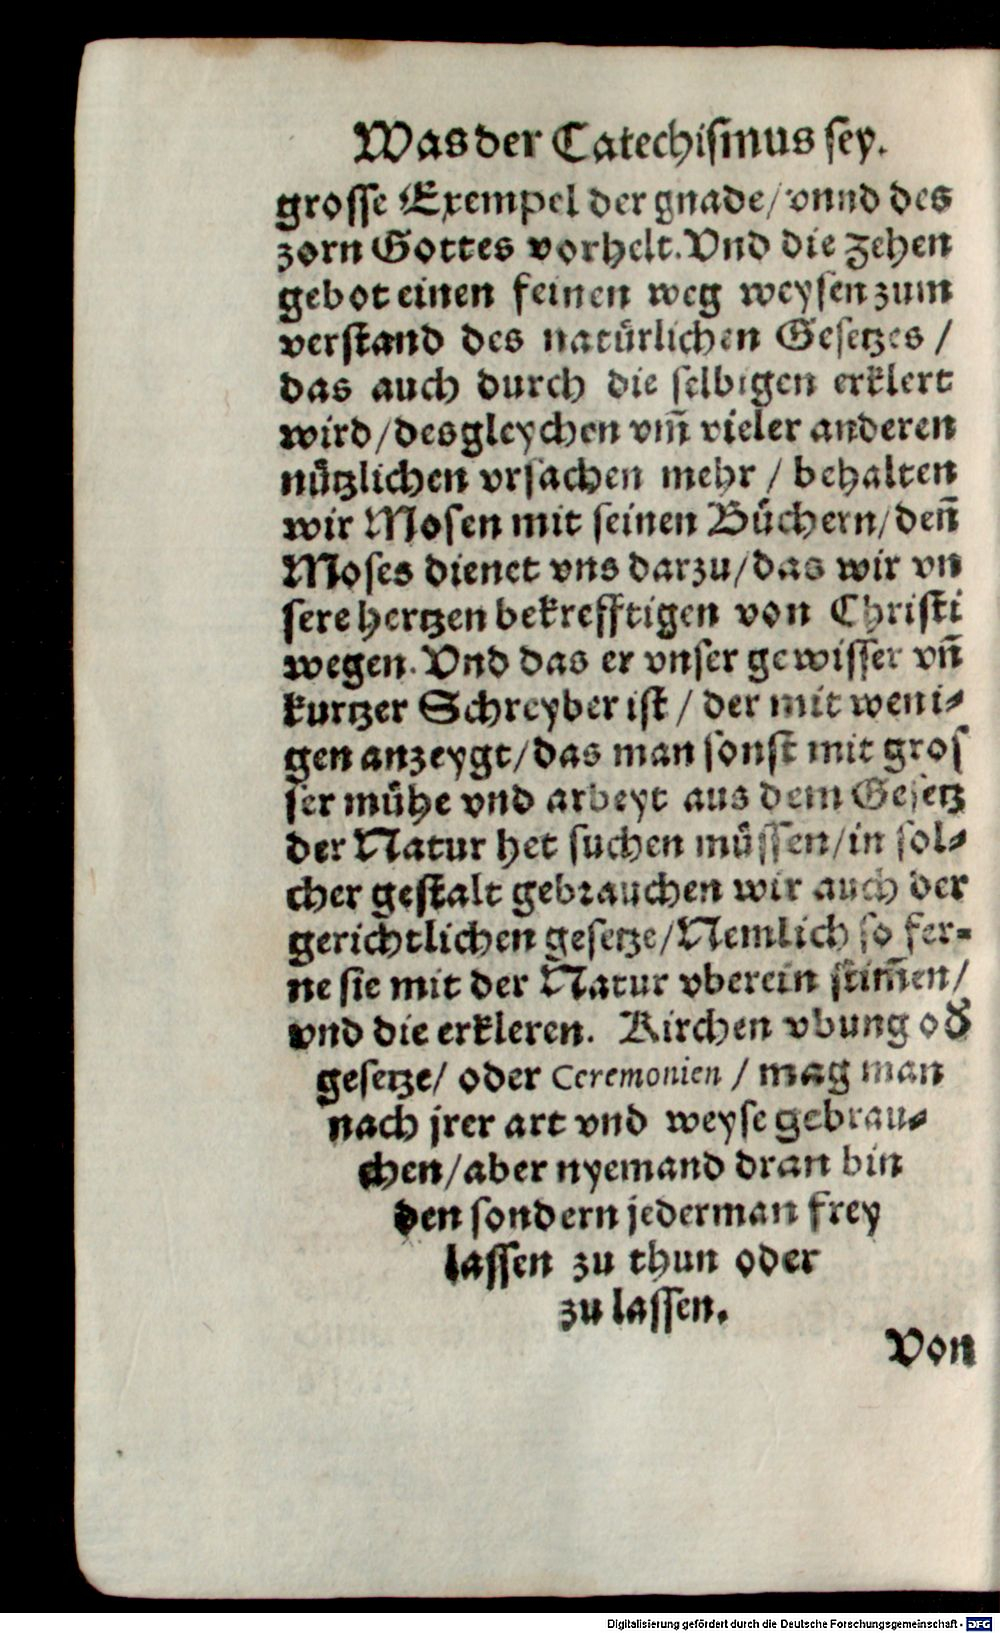 Was der Catechiſmus ſey.
groſſe Exempel der gnade/ vnnd des
zorn Gottes vorhelt. Vnd die zehen
gebot einen feinen weg weyſen zum
verſtand des natuͤrlichen Geſetzes /
das auch durch die ſelbigen erklert
wird/ desgleychen vm̃ vieler anderen
nuͤtzlichen vrſachen mehr / behalten
wir Moſen mit ſeinen Buͤchern/ deñ
Moſes dienet vns darzu/ das wir vn
ſere hertzen bekrefftigen von Chriſti
wegen. Vnd das er vnſer gewiſſer vñ
kurtzer Schreyber iſt / der mit weni-
gen anzeygt/ das man ſonſt mit groſ
ſer muͤhe vnd arbeyt aus dem Geſetz
der Natur het ſuchen muͤſſen/ in ſol-
cher geſtalt gebrauchen wir auch der
gerichtlichen geſetze/ Nemlich ſo fer-
ne ſie mit der Natur vberein ſtim̃en/
vnd die erkleren. Kirchen vbung oď
geſetze/ oder Ceremonien / mag man
nach jrer art vnd weyſe gebrau-
chen/ aber nyemand dran bin
den ſondern jederman frey
laſſen zu thun oder
zu laſſen.
Von
Digitalisierung gefördert durch die Deutsche Forschungsgemeinschaft - DFG